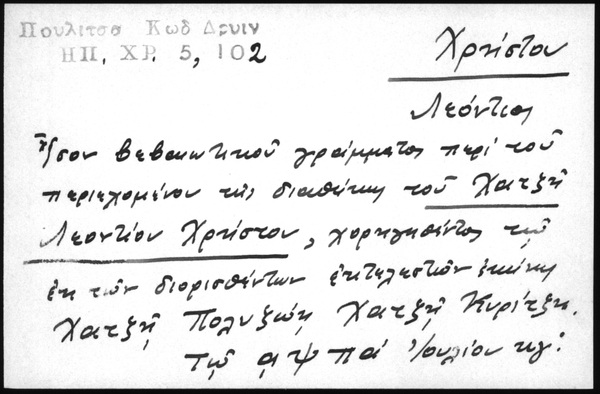 Πουλιτσα Κωδ Δρυιν
ΗΠ. ΧΡ. 5, 102
Χρήστου
Λεόντιος
Ἴσον βεβαιωτικοῦ γράμματος περί τοῦ
περιεχομένου τῆς διαθήκης τοῦ Χατζῆ
Λεοντίου Χρήστου, χορηγηθέντος τῷ
ἐκ τῶν διορισθέντων ἐκτελεστῶν ἐκείνης
Χατζῇ Πολυζώη Χατζῆ Κυρίτζη.
τῷ αψπά Ἰουλίου κγ: